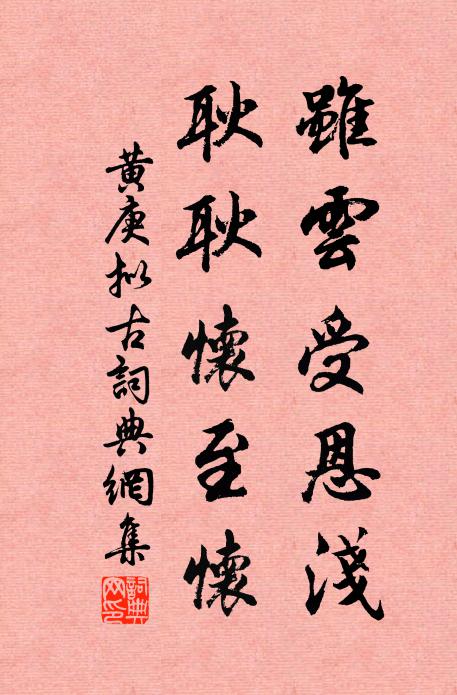 雖雲受恩淺
耿耿懷至懷
黃庚拟古詞典網集
詞典網印